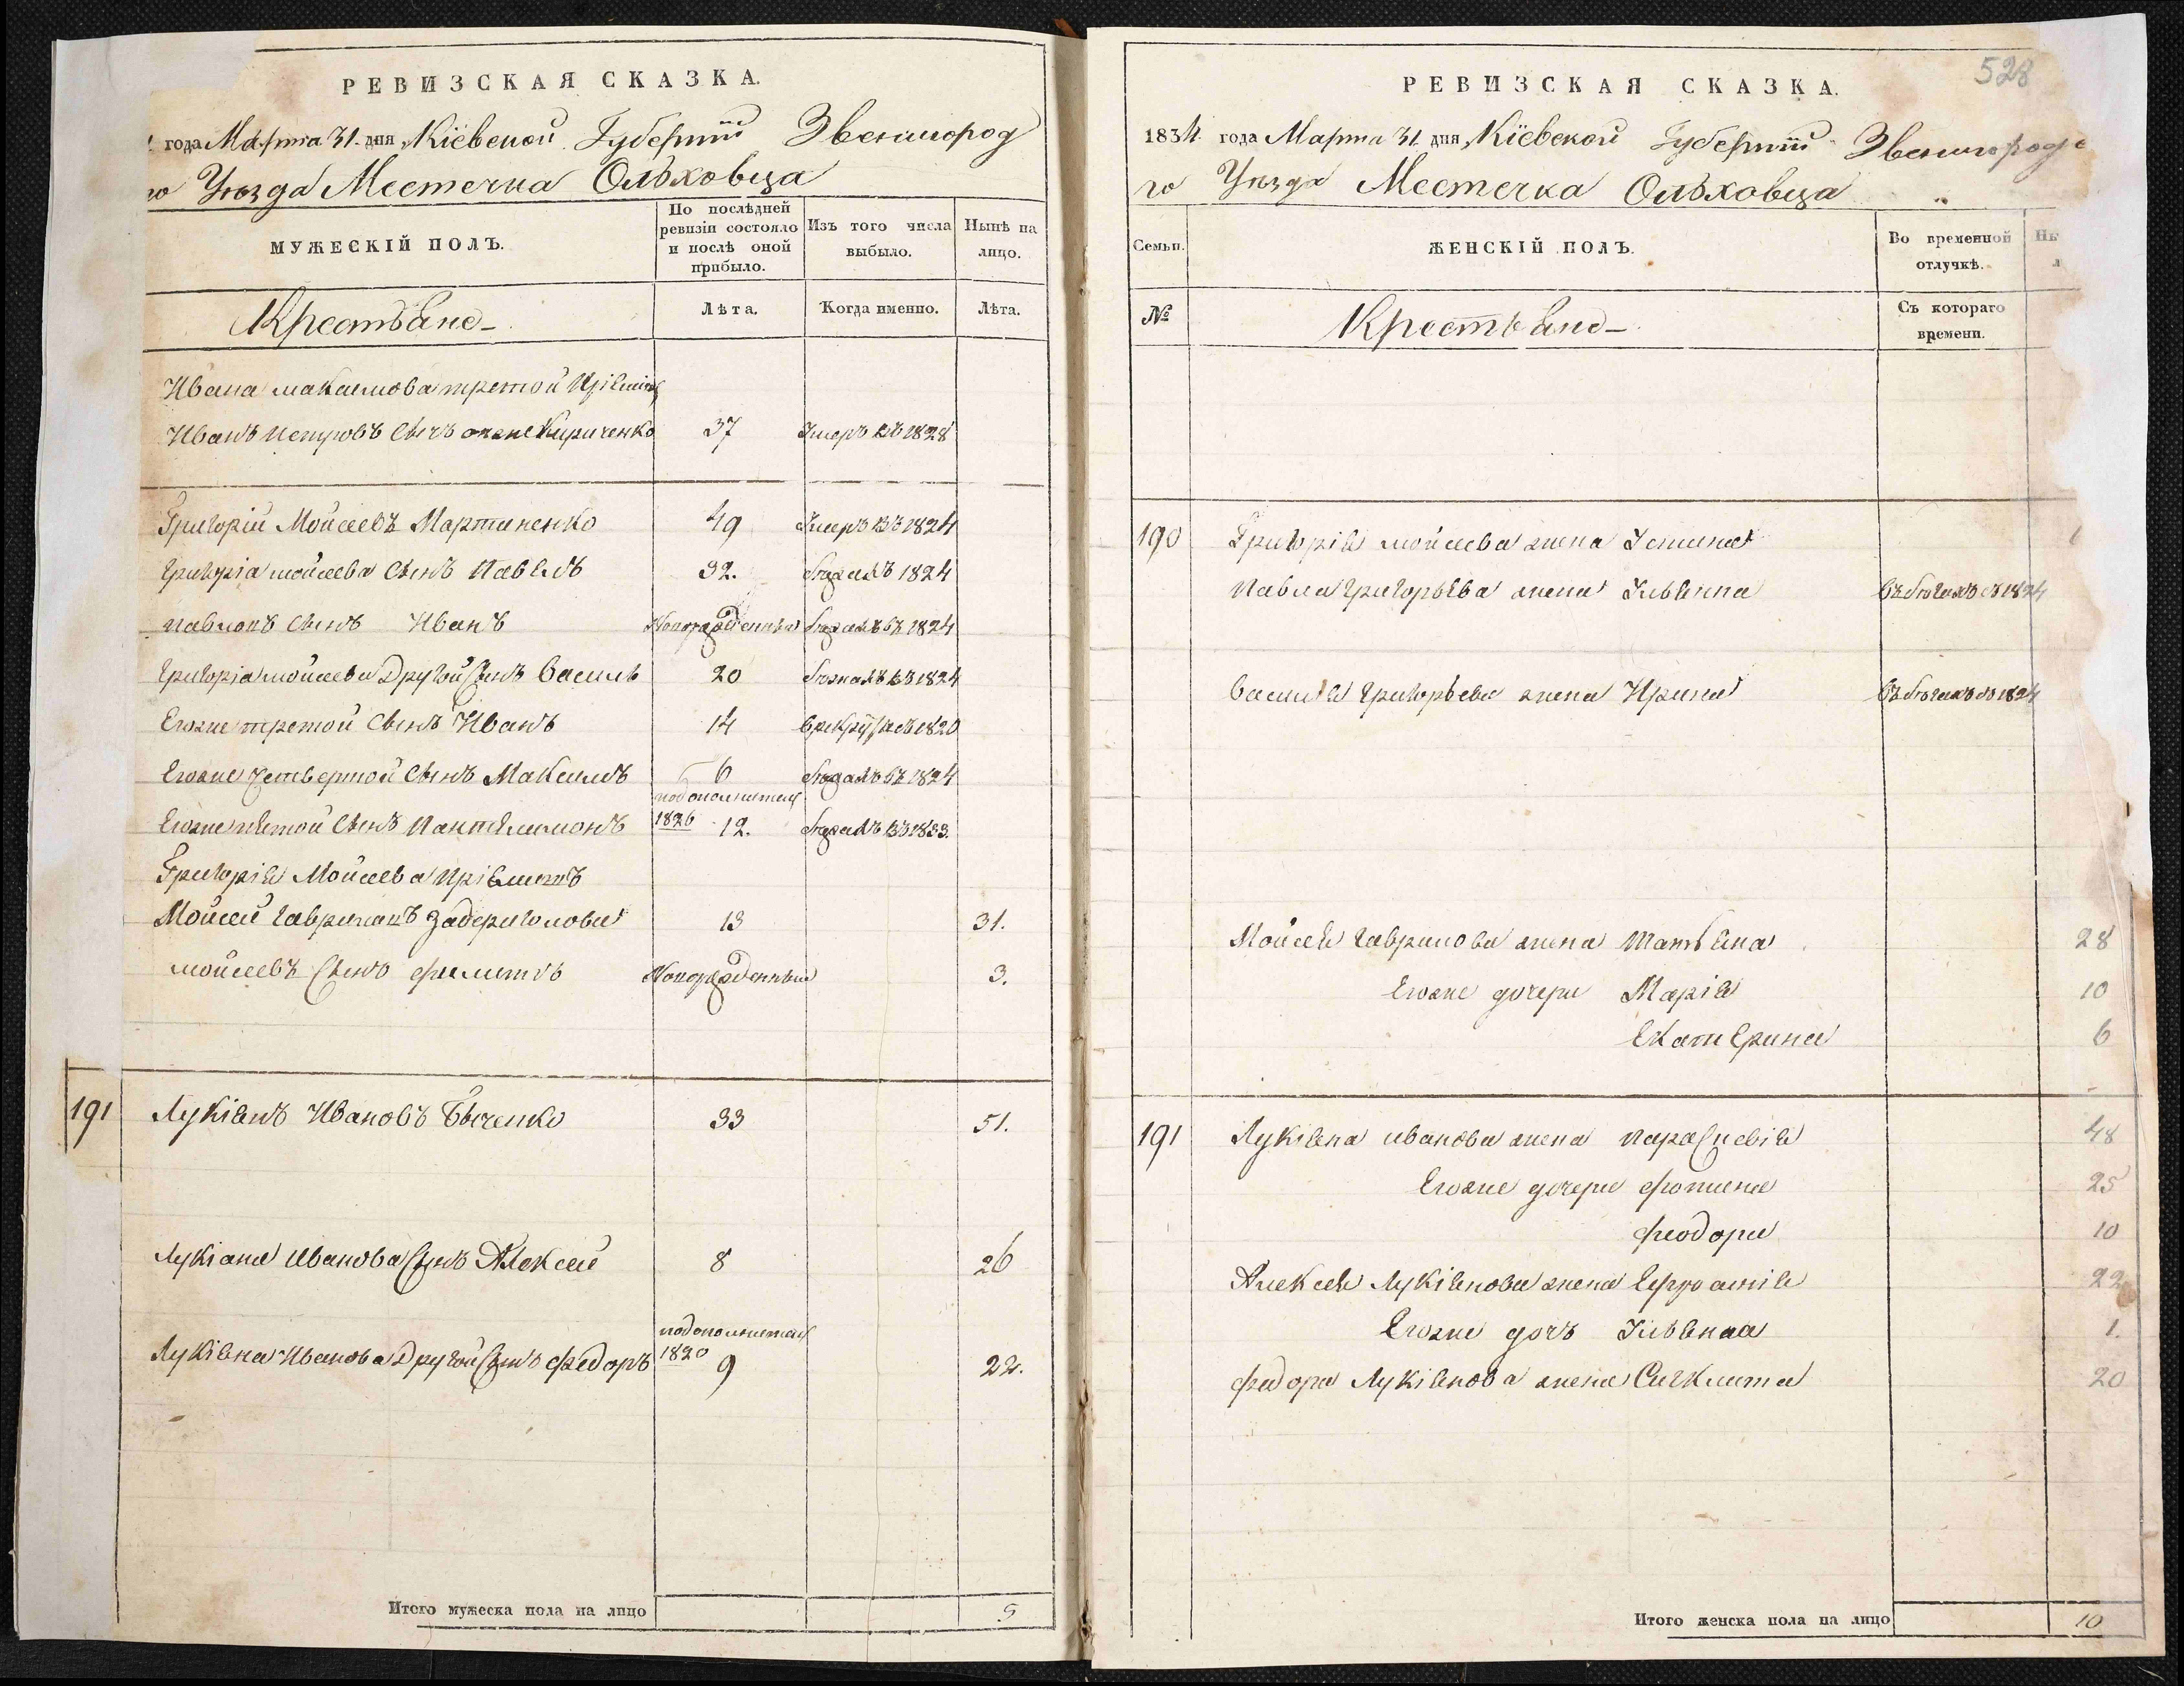 РЕВИЗСКАЯ СКАЗКА.
года Марта 31. дня Кіевской Губерніи Звенигород
го Уѣзда Местечка Ольховца
МУЖЕСКІЙ ПОЛЪ.
По послѣдней ревизіи состояло и послѣ оной прибыло.
Изъ того числа выбыло.
Нынѣ на лицо.
Крестьяне
Лѣта.
Когда именно.
Лѣта.
Ивана Макسимова третой пріемышъ
Иванъ Петровъ Кириченко 37 Умеръ въ 1828
Григорій Мойсеевъ Мартиненко 49 Умеръ въ 1824
Григоріа мойсеева сынъ Павелъ 32. бѣжалъ 1824
павловъ сынъ Иванъ Новорожденный бѣжалъ въ 1824
Григоріа мойсеева Другой сынъ Василь 20 бѣжалъ въ 1824
Егоже третой сынъ Иванъ 14 в рекруты 1820
Егоже Четвертой сынъ Максимъ 6 бѣжалъ въ 1824
подополнител
Егоже пятой сынъ Пантелимонъ 1826 12. бѣжалъ въ 1833.
Григорія Мойсеева пріемышъ
Мойсей Гавриловъ Задериголова 13 31.
мойсеевъ сынъ филипъ Новорожденный 3.
191 Лукіянъ Ивановъ Быченко 33 51.
Лукіана Иванова сынъ Алексей 8 26
подополнител
Лукіяна Иванова Другой сынъ федоръ 1820 9 22.
Итого мужеска пола на лицо 5
528
РЕВИЗСКАЯ СКАЗКА.
1834 года Марта 31 дня Кіевской Губерніи Звенигородс
го Уѣзда Местечка Ольховца
Семьи.
ЖЕНСКІЙ ПОЛЪ.
Во временной отлучкѣ.
№
Крестьяне
Съ котораго времени.
190 Григорія мойсеева жена Устина
Павла Григорьева жена Ульяна въ бѣгахъ съ 1824
Василя Григорьева жена Ирина въ бѣгахъ съ 1824
Мойсея Гаврилова жена Татьяна 28
Егоже дочери Марія 10
Екатерина 6
191 Лукіяна иванова жена параскевія 48
Егоже дочери фотина 25
феодора 10
Алексея Лукіянова жена Ефросинія 22
Егоже дочь Ульяна 1.
федора Лукіянова жена Сигклита 20
Итого женска пола на лицо 10